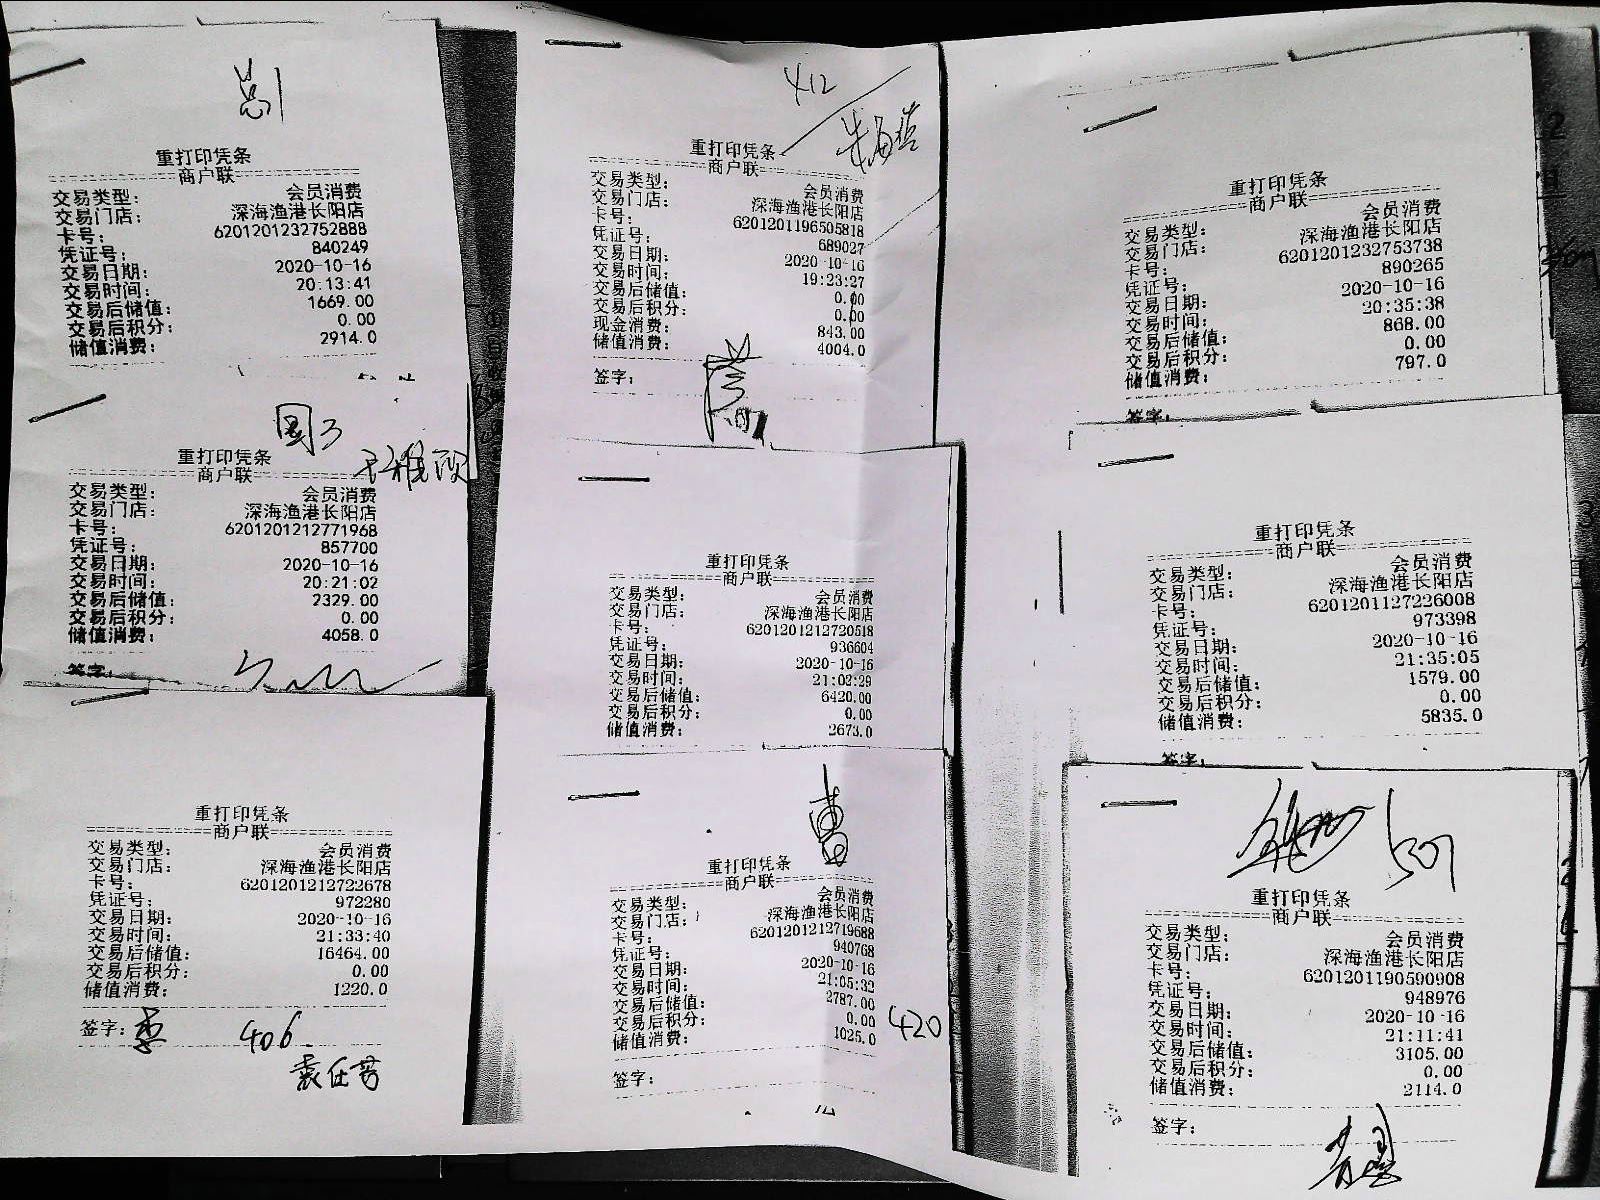 总1
重打印凭条
商户联
交易类型： 会员消费
交易门店： 深海渔港长阳店
卡号： 6201201232752888
凭证号： 840249
交易日期： 2020-10-16
交易时间： 20:13:41
交易后储值： 1669.00
交易后积分： 0.00
储值消费： 2914.0
国3
重打印凭条
商户联
交易类型： 会员消费
交易门店： 深海渔港长阳店
卡号： 6201201212771968
凭证号： 857700
交易日期： 2020-10-16
交易时间： 20:21:02
交易后储值： 2329.00
交易后积分： 0.00
储值消费： 4058.0
签字：
重打印凭条
商户联
交易类型： 会员消费
交易门店： 深海渔港长阳店
卡号： 6201201212722678
凭证号： 972280
交易日期： 2020-10-16
交易时间： 21:33:40
交易后储值： 16464.00
交易后积分： 0.00
储值消费： 1220.0
签字： 406
412
重打印凭条
商户联
交易类型： 会员消费
交易门店： 深海渔港长阳店
卡号： 6201201196505818
凭证号： 689027
交易日期： 2020-10-16
交易时间： 19:23:27
交易后储值： 0.00
交易后积分： 0.00
现金消费： 843.00
储值消费： 4004.0
签字：
重打印凭条
商户联
交易类型： 会员消费
交易门店： 深海渔港长阳店
卡号： 6201201212720518
凭证号： 936604
交易日期： 2020-10-16
交易时间： 21:02:29
交易后储值： 6420.00
交易后积分： 0.00
储值消费： 2673.0
曹
重打印凭条
商户联
交易类型： 会员消费
交易门店： 深海渔港长阳店
卡号： 6201201212719688
凭证号： 940768
交易日期： 2020-10-16
交易时间： 21:05:32
交易后储值： 2787.00
交易后积分： 0.00
储值消费： 1025.0
420
签字：
重打印凭条
商户联
交易类型： 会员消费
交易门店： 深海渔港长阳店
卡号： 6201201232753738
凭证号： 890265
交易日期： 2020-10-16
交易时间： 20:35:38
交易后储值： 868.00
交易后积分： 0.00
储值消费： 797.0
签字：
重打印凭条
商户联
交易类型： 会员消费
交易门店： 深海渔港长阳店
卡号： 6201201127226008
凭证号： 973398
交易日期： 2020-10-16
交易时间： 21:35:05
交易后储值： 1579.00
交易后积分： 0.00
储值消费： 5835.0
签字：
507
重打印凭条
商户联
交易类型： 会员消费
交易门店： 深海渔港长阳店
卡号： 6201201190590908
凭证号： 948976
交易日期： 2020-10-16
交易时间： 21:11:41
交易后储值： 3105.00
交易后积分： 0.00
储值消费： 2114.0
签字：